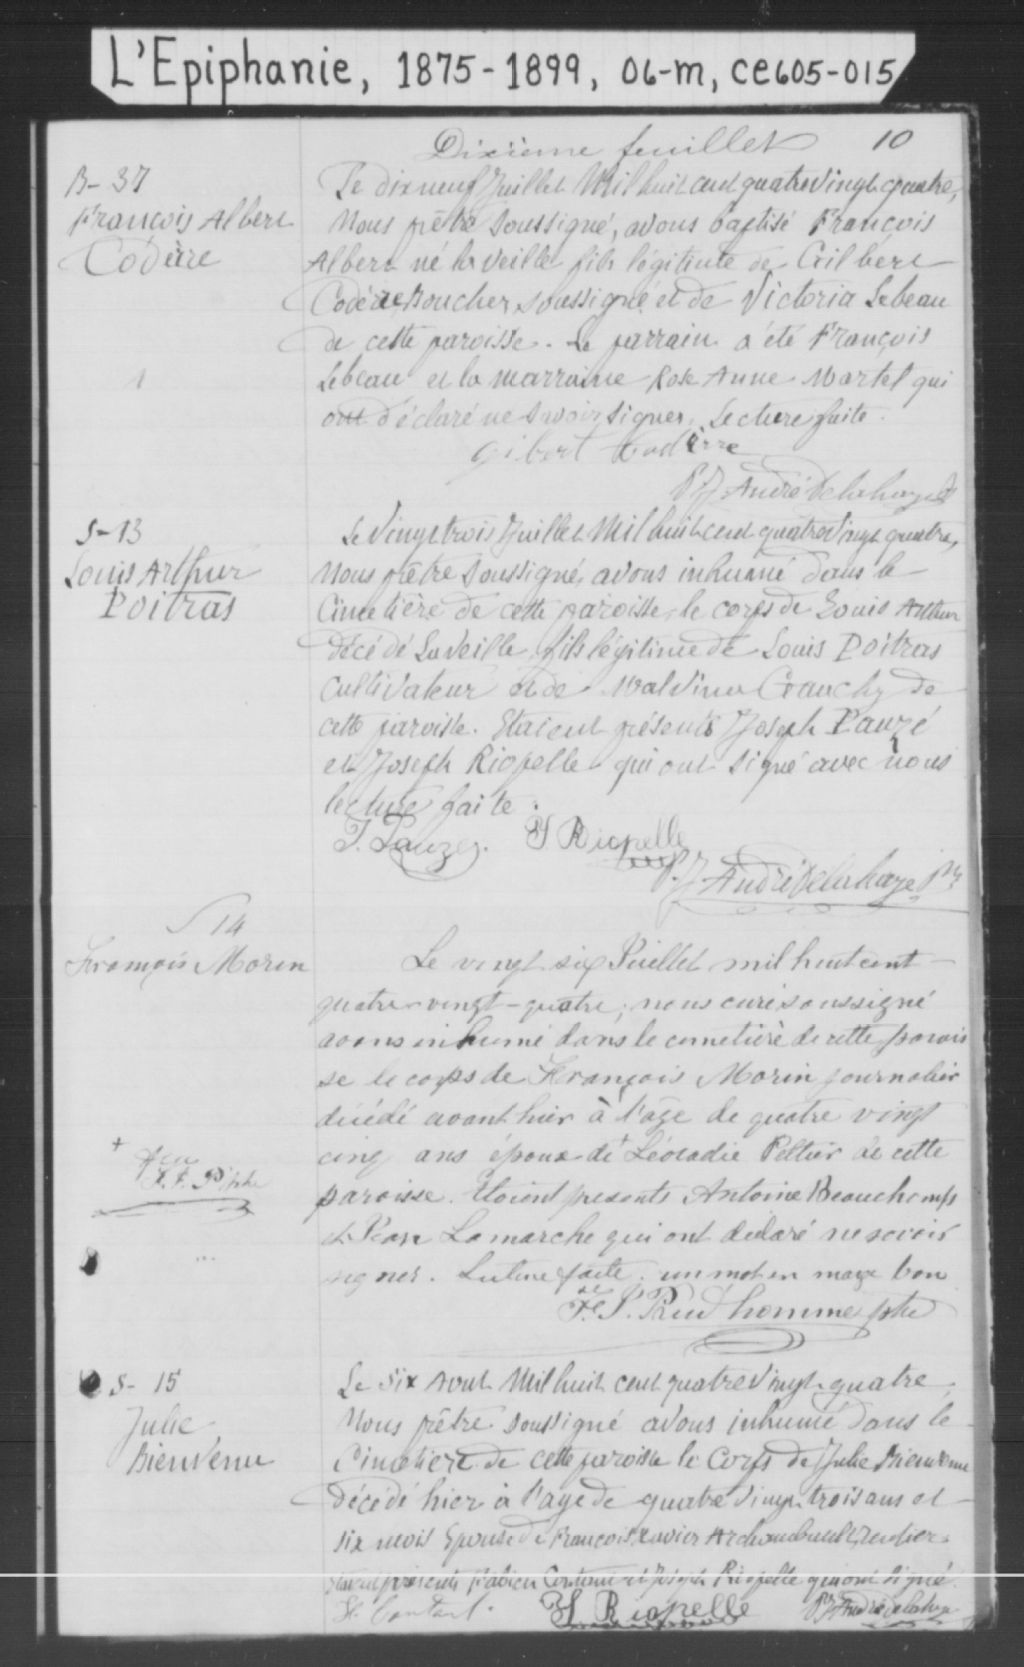 L'Epiphanie, 1875-1899, 06-m, CE605-015
Dixième feuillet 10
B- 37
François Albert
Codère
Le dix neuf Juillet Mil huit cent quatre Vingt quatre,
Nous prêtre Soussigné, avons baptisé François
Albert né la veille fils légitime de Gilbert
Codère Boucher, soussigné et de Victoria Lebeau
de cette paroisse. Le parrain a été François
Lebeau et la marraine Rose Anne Martel qui
ont déclaré ne Savoir signer. Lecture faite.
Gibert Codèrre
P. J. André Delahaye
S-13
Louis Arthur
Poitras
Le Vingt trois Juillet Mil huit cent quatre Vingt quatre,
Nous prêtre Soussigné, avons inhumé dans le
Cimetière de cette paroisse, le corps de Louis Arthur
décédé La veille, fils légitime de Louis Poitras
Cultivateur et de Malvina de
cette paroisse. Etaient présents Joseph Pauzé
et Joseph Riopelle qui ont signé avec nous
lecture faite.
J. Pauzé. J Riopelle
P. J. André Delahaye Ptre
S 14
François Morin
Le vingt six Juillet mil huit cent
quatre-vingt-quatre, nous curé soussigné
avons inhumé dans le cimetière de cette parois
se le corps de François Morin journalier
décédé avant hier à l'âge de quatre vingt
cinq ans époux de + Léocadie Peltier de cette
paroisse. Etoient presents Antoine Beauchamps
et Jean Lamarche qui ont déclaré ne savoir
signer. Lecture faite. un mot en marge bon
+ feu
F. X. P. ptre
F. X. S. Prud'homme ptre
S- 15
Julie
Bienvenu
Le Six Aout Mil huit cent quatre Vingt-quatre,
Nous prêtre Soussigné avons inhumé dans le
Cimetière de cette paroisse le Corps de Julie Bienvenu
Décédé hier à l'age de quatre Vingt trois ans et
six mois Epouse de François Xavier Archambault, rentier.
Etaient présents Fabien Contant et Joseph Riopelle qui ont signé.
Contant. J Riopelle P J André Delahaye